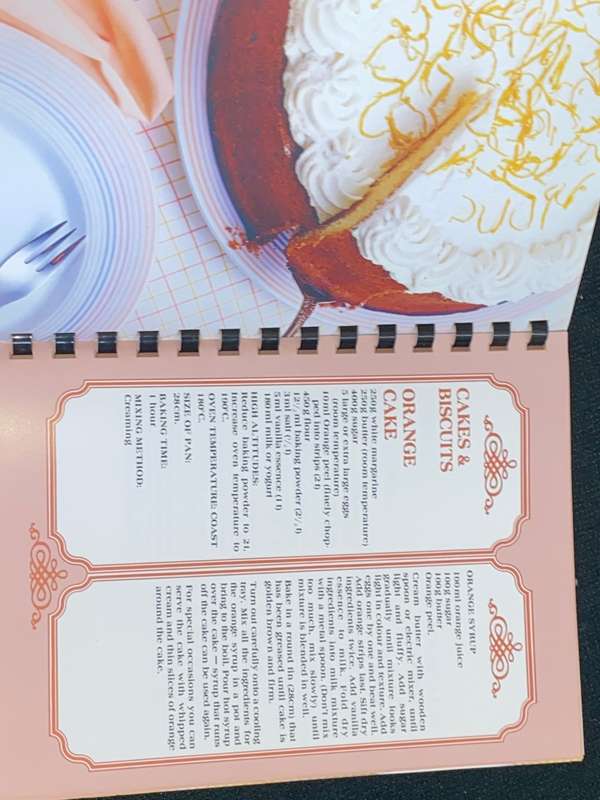 CAKES &
BISCUITS
ORANGE
CAKE
250g white margarine
250g butter (room temperature)
400g sugar
5 large or extra large eggs
(room temperature)
10ml Orange peel (finely chop-
ped into strips (2 t)
450g flour
12½ ml baking powder (2½ t)
3 ml salt (½ t)
5 ml Vanilla essence (1 t)
180ml milk or yogurt
HIGH ALTITUDES:
Reduce baking powder to 2 t.
Increase oven temperature to
190°C.
OVEN TEMPERATURE: COAST
180°C.
SIZE OF PAN:
28cm.
BAKING TIME:
1 hour
MIXING METHOD:
Creaming
ORANGE SYRUP
100ml orange juice
100g sugar
100g butter
Orange peel.
Cream butter with wooden
spoon or electric mixer, until
light and fluffy. Add sugar
gradually until mixture looks
light in colour and texture. Add
eggs one by one and beat well.
Add orange strips last. Sift dry
ingredients twice. Add vanilla
essence to milk. Fold dry
ingredients into milk mixture
with a metal spoon. (Don't mix
too much, mix slowly) until
mixture is blended in well.
Bake in a round tin (28cm) that
has been greased until cake is
golden brown and firm.
Turn out carefully onto a cooling
tray. Mix all the ingredients for
the orange syrup in a pot and
bring to the boil. Pour hot syrup
over the cake — syrup that runs
off the cake can be used again.
For special occasions you can
serve the cake with whipped
cream and thin slices of orange
around the cake.